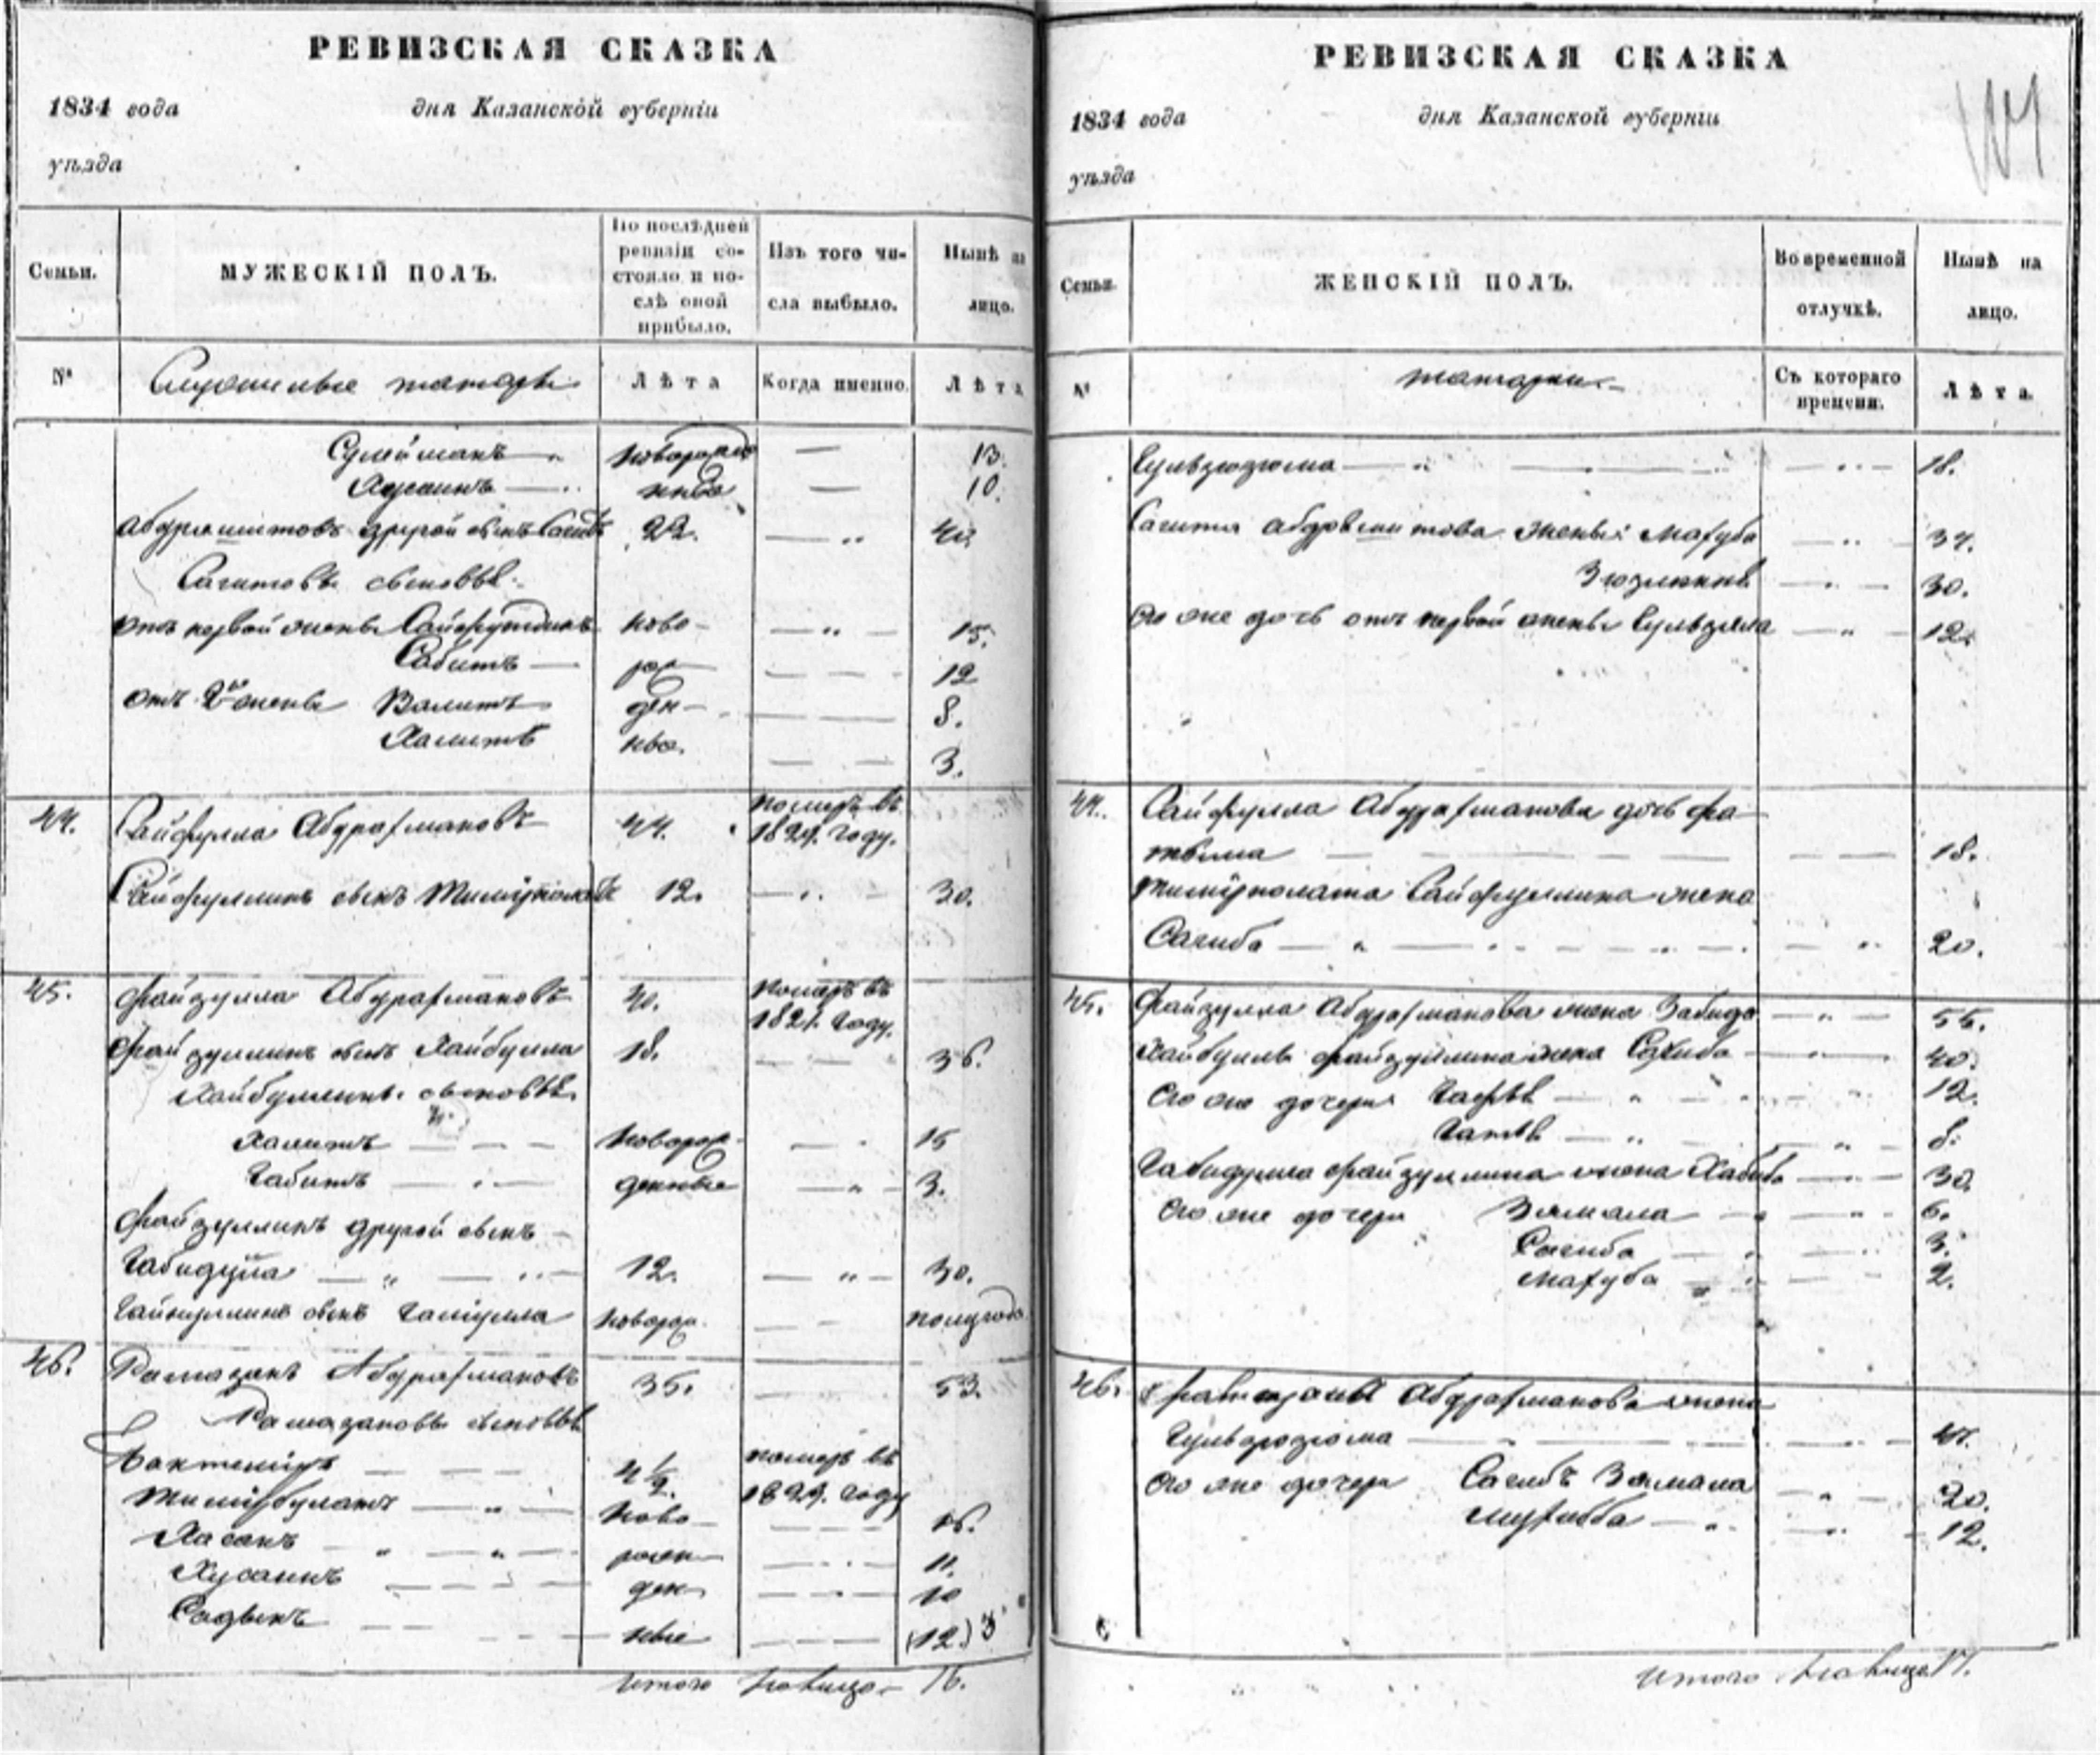 РЕВИЗСКАЯ СКАЗКА
1834 года дня Казанской губерніи
уѣзда
Семьи. МУЖЕСКІЙ ПОЛЪ. По послѣдней ревизіи состояло и послѣ оной прибыло. Изъ того числа выбыло. Нынѣ на лицо.
№ татары Лѣта Когда именно. Лѣта
Сулейманъ новорож 13.
Хусаинъ нные 10.
Абдрашитовъ другой сынъ Сагитъ 22. 40
Сагитовы сыновья
отъ первой жены Сайфутдинъ ново 15.
Сабитъ рож 12
отъ 2й жены Валитъ ден 8.
Халитъ ные. 3.
44. Сайфулла Абдрахмановъ 44. померъ въ 1829. году.
Сайфуллинъ сынъ Тимирполатъ 12. 30.
45. Файзулла Абдрахмановъ 40. померъ въ 1821. году.
Файзуллинъ сынъ Хайбулла 18. 36.
Хайбуллины сыновья
Халитъ новорож 15
Габитъ денные 3.
Файзуллинъ другой сынъ
Габидулла 12. 30.
сынъ новорож. полугода
46. Рамазанъ Абдрахмановъ 35. 53.
Рамазановы сыновья
Бактемиръ 4 1/2. померъ въ 1829. году
Тимирбулатъ ново 16.
Хасанъ рожн 11.
Хусаинъ ден 10
Садыкъ ные (12.) 3
Итого на лицо 16.
РЕВИЗСКАЯ СКАЗКА
1834 года дня Казанской губерніи
уѣзда
Семьи. ЖЕНСКІЙ ПОЛЪ. Во временной отлучкѣ. Нынѣ на лицо.
№ татарки Съ котораго времени. Лѣта
Гульзюзюма 18.
Сагита Абдрашитова жены: Махуба 34.
30.
его же дочь отъ первой жены Гульзяла 12.
44. Сайфулла Абдрахманова дочь Фа-
тыма 18.
Тимирполата Сайфуллина жена
Сагиба 20.
45. Файзулла Абдрахманова жена Забида 55.
Хайбуллы Файзуллина жена Сахиба 40.
его же дочери 12.
8.
Габидулла Файзуллина жена Хабиба 30.
его же дочери Зямала 6.
Сагиба 3.
Махуба 2.
46. Абдрахманова жена
Гульзюзюма 47.
его же дочери Сагибъ Зямала 20.
12.
Итого на лицо 17.